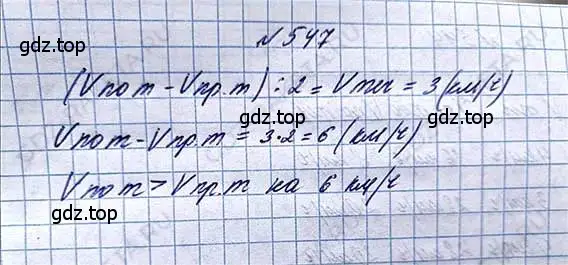 №547
gdz.top
gdz.top
(Vпот - Vпр.т) : 2 = Vтеч = 3 (км/ч)
gdz.top
gdz.top
Vпот - Vпр.т = 3·2 = 6 (км/ч)
Vпот > Vпр.т на 6 км/ч
gdz.top
gdz.top